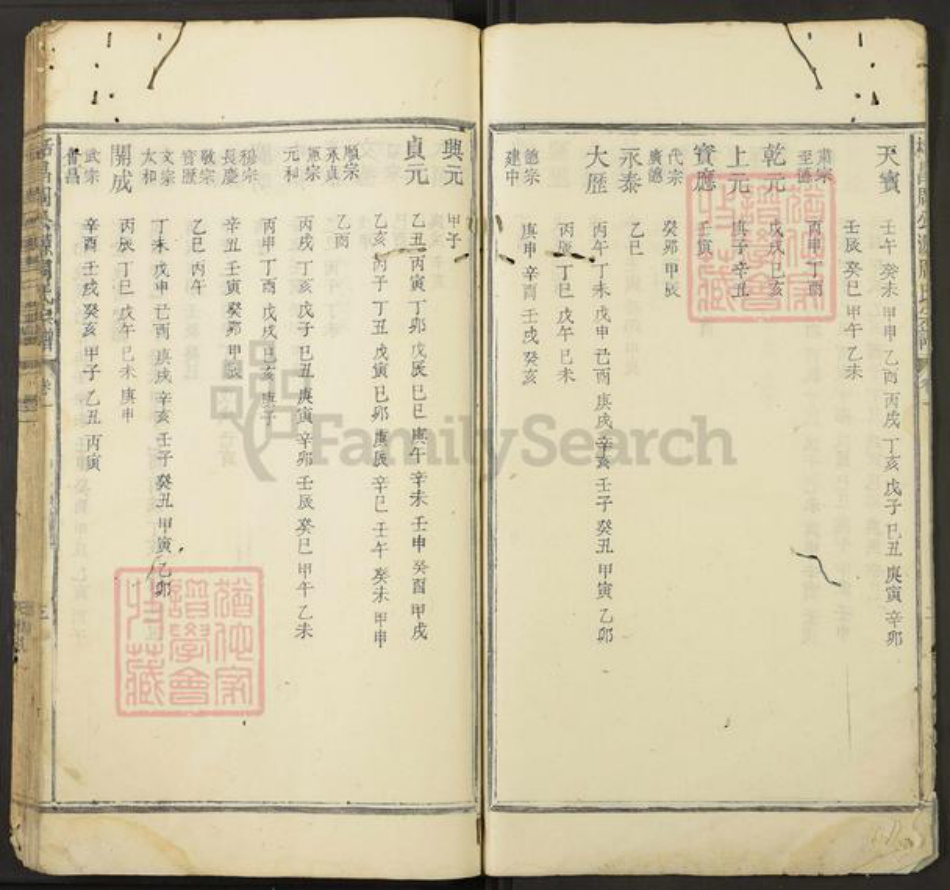 天寶 壬午 癸未 甲申 乙酉 丙戌 丁亥 戊子 己丑 庚寅 辛卯
壬辰 癸巳 甲午 乙未
肅宗至德 丙申 丁酉
乾元 戊戌 己亥
上元 庚子 辛丑
寶應 壬寅
代宗廣德 癸卯 甲辰
永泰 乙巳
大歷 丙午 丁未 戊申 己酉 庚戌 辛亥 壬子 癸丑 甲寅 乙卯
丙辰 丁巳 戊午 己未
德宗建中 庚申 辛酉 壬戌 癸亥
興元 甲子
貞元 乙丑 丙寅 丁卯 戊辰 己巳 庚午 辛未 壬申 癸酉 甲戌
乙亥 丙子 丁丑 戊寅 己卯 庚辰 辛巳 壬午 癸未 甲申
順宗永貞 乙酉
憲宗元和 丙戌 丁亥 戊子 己丑 庚寅 辛卯 壬辰 癸巳 甲午 乙未
丙申 丁酉 戊戌 己亥 庚子
穆宗長慶 辛丑 壬寅 癸卯 甲辰
敬宗寶歷 乙巳 丙午
文宗太和 丁未 戊申 己酉 庚戌 辛亥 壬子 癸丑 甲寅 乙卯
開成 丙辰 丁巳 戊午 己未 庚申
武宗會昌 辛酉 壬戌 癸亥 甲子 乙丑 丙寅
卷一
三
譜學會
收藏
譜學會
收藏
FamilySearch